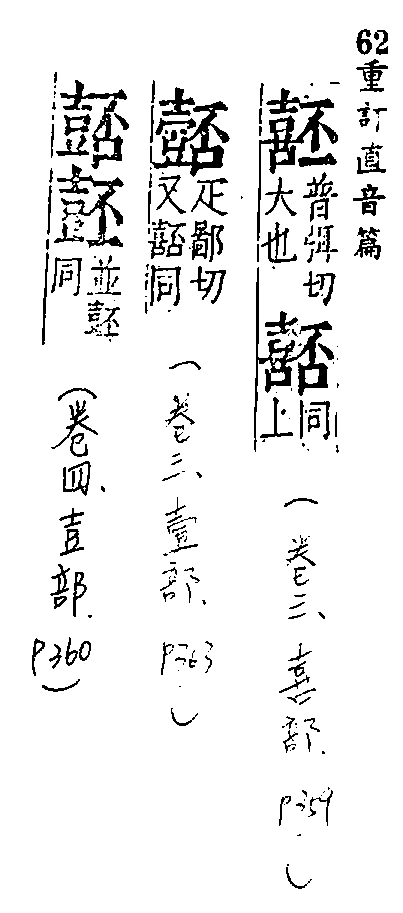 62重訂直音篇
普弭切大也 嚭同上（卷三、喜部. P359）
疋鄙切又嚭同（卷三、壹部. P363）
並同（卷四、壴部. P360）